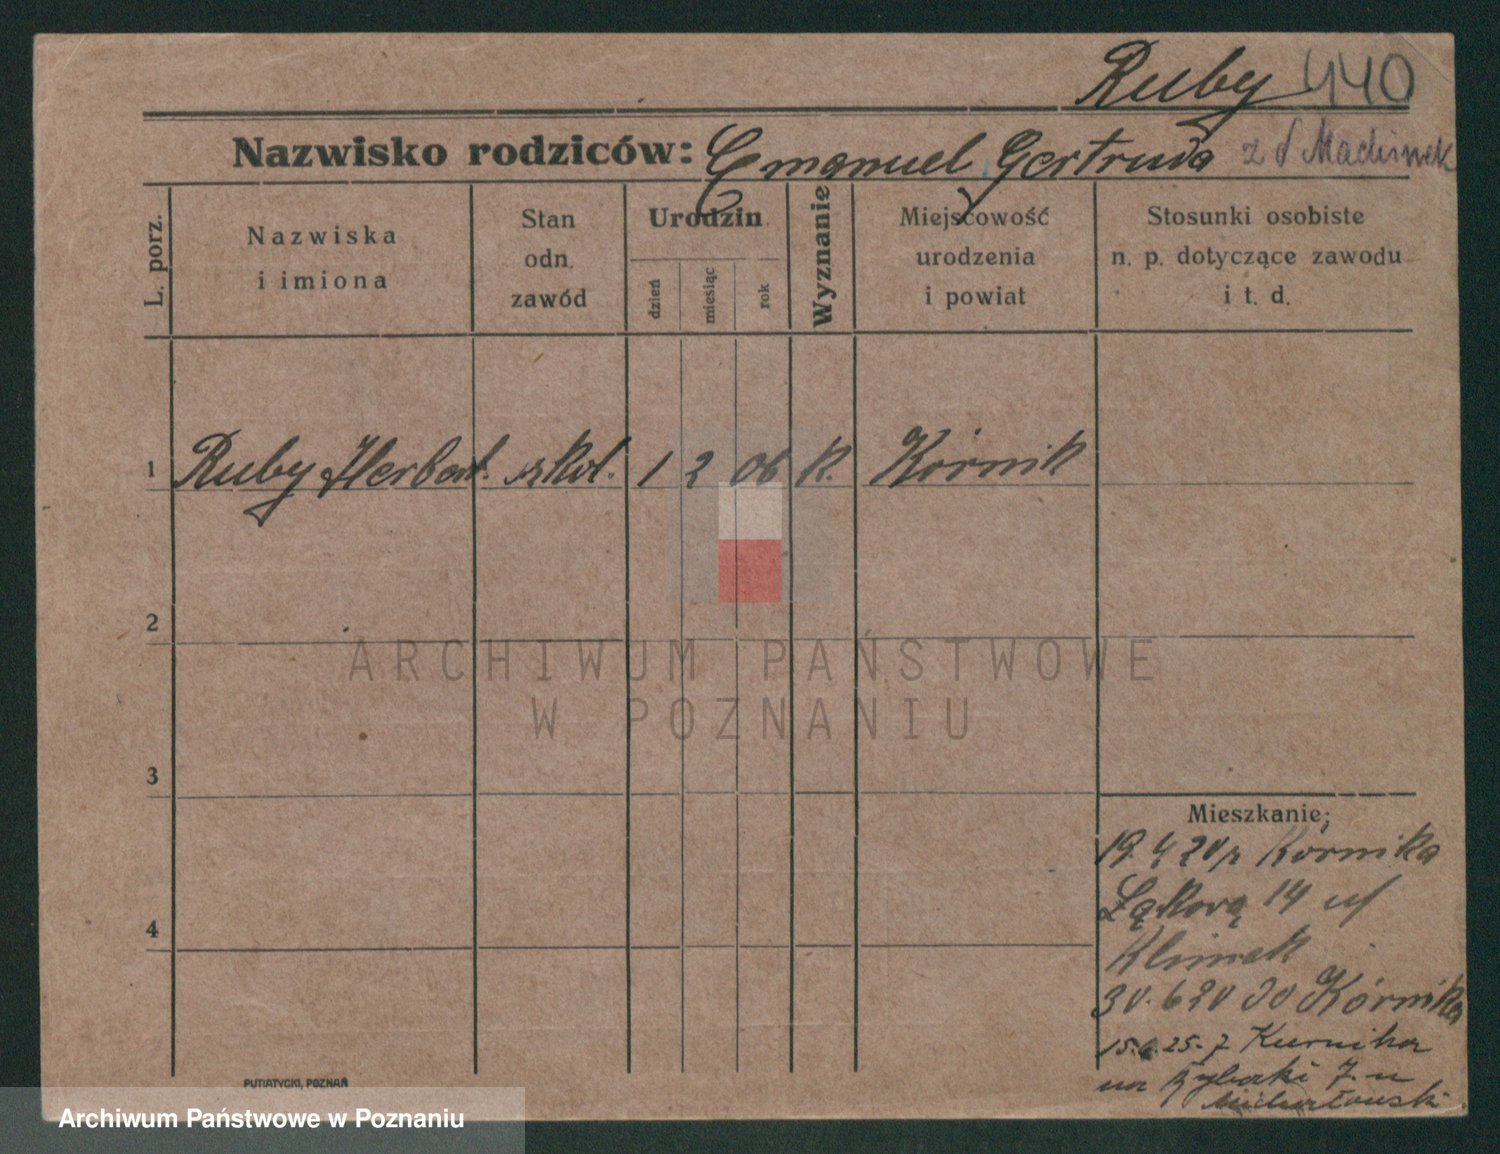 Ruby 440
Nazwisko rodziców: Emanuel, Gertruda z d
L. porz.
Nazwiska
i imiona
Stan
odn.
zawód
Urodzin
dzień
miesiąc
rok
Wyznanie
Miejscowość
urodzenia
i powiat
Stosunki osobiste
n. p. dotyczące zawodu
i t. d.
1 Ruby Herbert. szkol. 1 2 06 k. Kórnik
2
3
4
Mieszkanie;
19. 4 20 Kórnika
Łąkowa 14
Klimek
30. 6 20 do Kórnika
15. 6. 25. z Kurnika
na Rybaki 7. u
PUTIATYCKI, POZNAŃ
ARCHIWUM PAŃSTWOWE
W POZNANIU
Archiwum Państwowe w Poznaniu